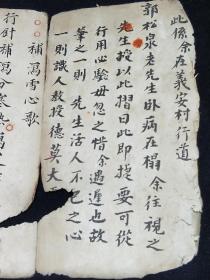 此係余在義安村行道
郭松泉老先生卧病在榻余往視之
先生授以此摺曰此即捷要可從
行用心驗毋忽之惜余遇遲也故
筆之一則先生活人不已之心
一則識人教授德莫大
補瀉雪心歌
行針補瀉分寒熱瀉